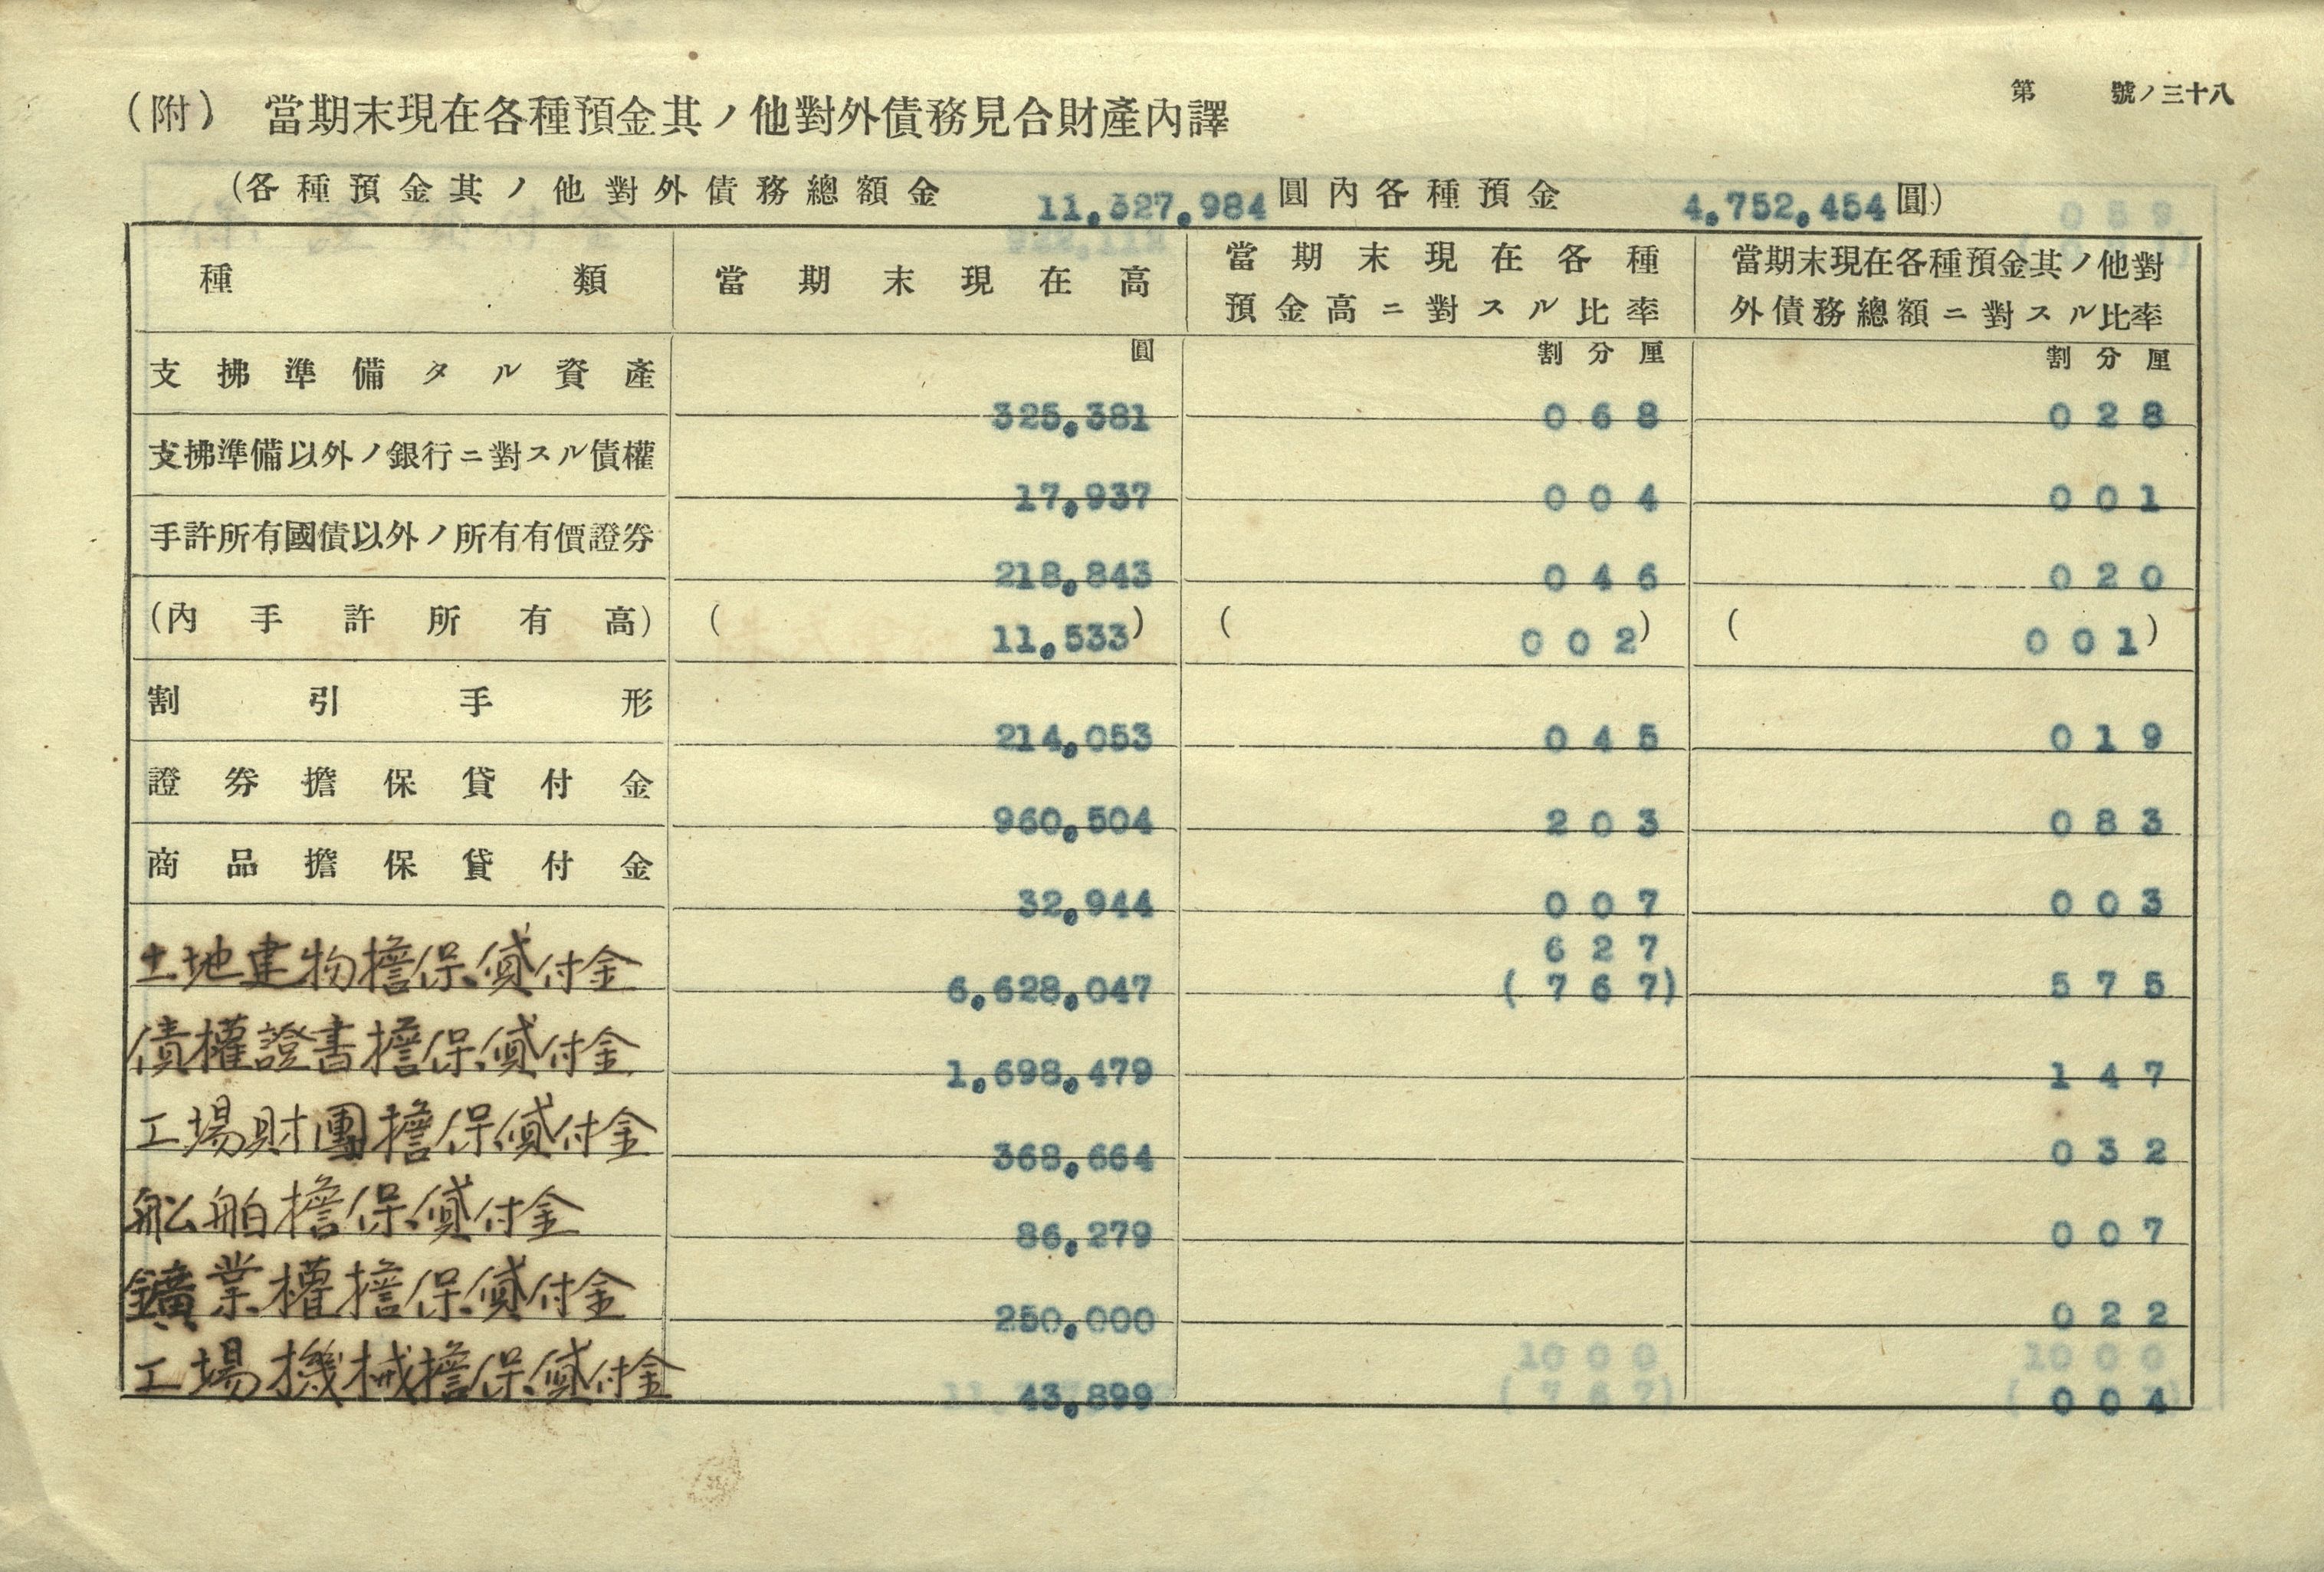 第 號ノ三十八
(附) 當期末現在各種預金其ノ他對外債務見合財產內譯
(各種預金其ノ他對外債務總額金 11,327,984 圓內各種預金 4,752,454 圓)
種類 當期末現在高 當期末現在各種預金高ニ對スル比率 當期末現在各種預金其ノ他對外債務總額ニ對スル比率
圓 割分厘 割分厘
支拂準備タル資產 325,381 0 6 8 0 2 8
支拂準備以外ノ銀行ニ對スル債權 17,937 0 0 4 0 0 1
手許所有國債以外ノ所有有價證券 218,843 0 4 6 0 2 0
(內手許所有高) (11,533) (0 0 2) (0 0 1)
割引手形 214,053 0 4 5 0 1 9
證券擔保貸付金 960,504 2 0 3 0 8 3
商品擔保貸付金 32,944 0 0 7 0 0 3
6 2 7
土地建物擔保貸付金 6,628,047 (7 6 7) 5 7 5
債權證書擔保貸付金 1,698,479 1 4 7
工場財團擔保貸付金 368,664 0 3 2
船舶擔保貸付金 86,279 0 0 7
鑛業權擔保貸付金 250,000 0 2 2
工場機械擔保貸付金 43,899 0 0 4